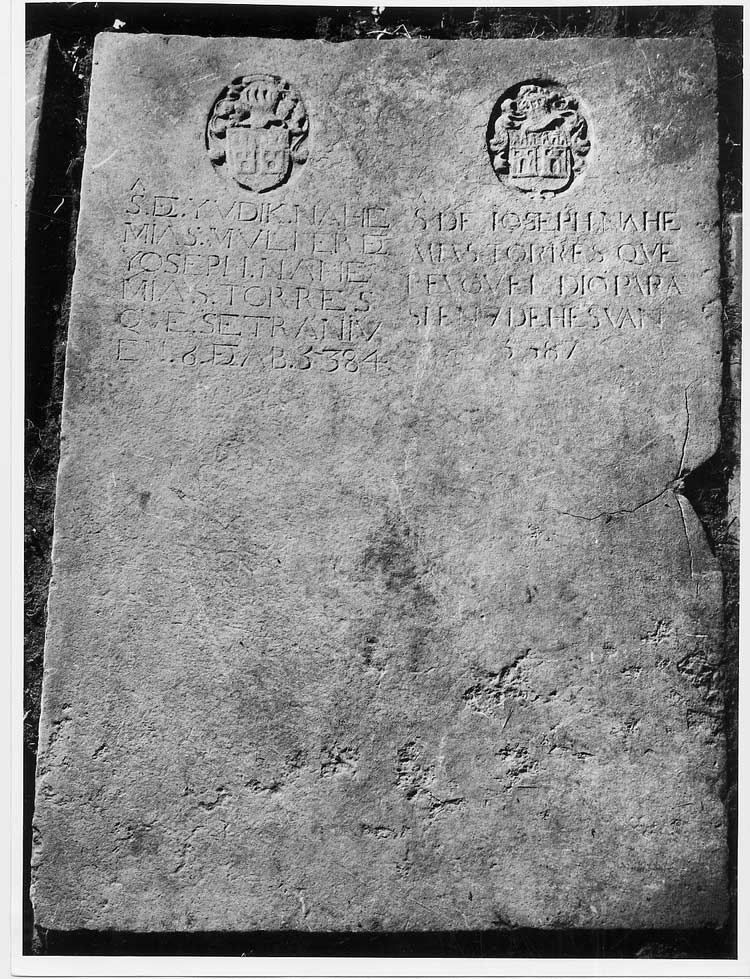 S.DE.YVDIK.NAHE
MIAS.MVLHER.DE
YOSEPH.NAHE
MIAS.TORRES
QVE.SE.TRANIV
EN.8.DE.AB.5384
S.DE IOSEPH.NAHE
MIAS.TORRES QVE
DIO PARA
SI EN 7 DE HESVAN
5387